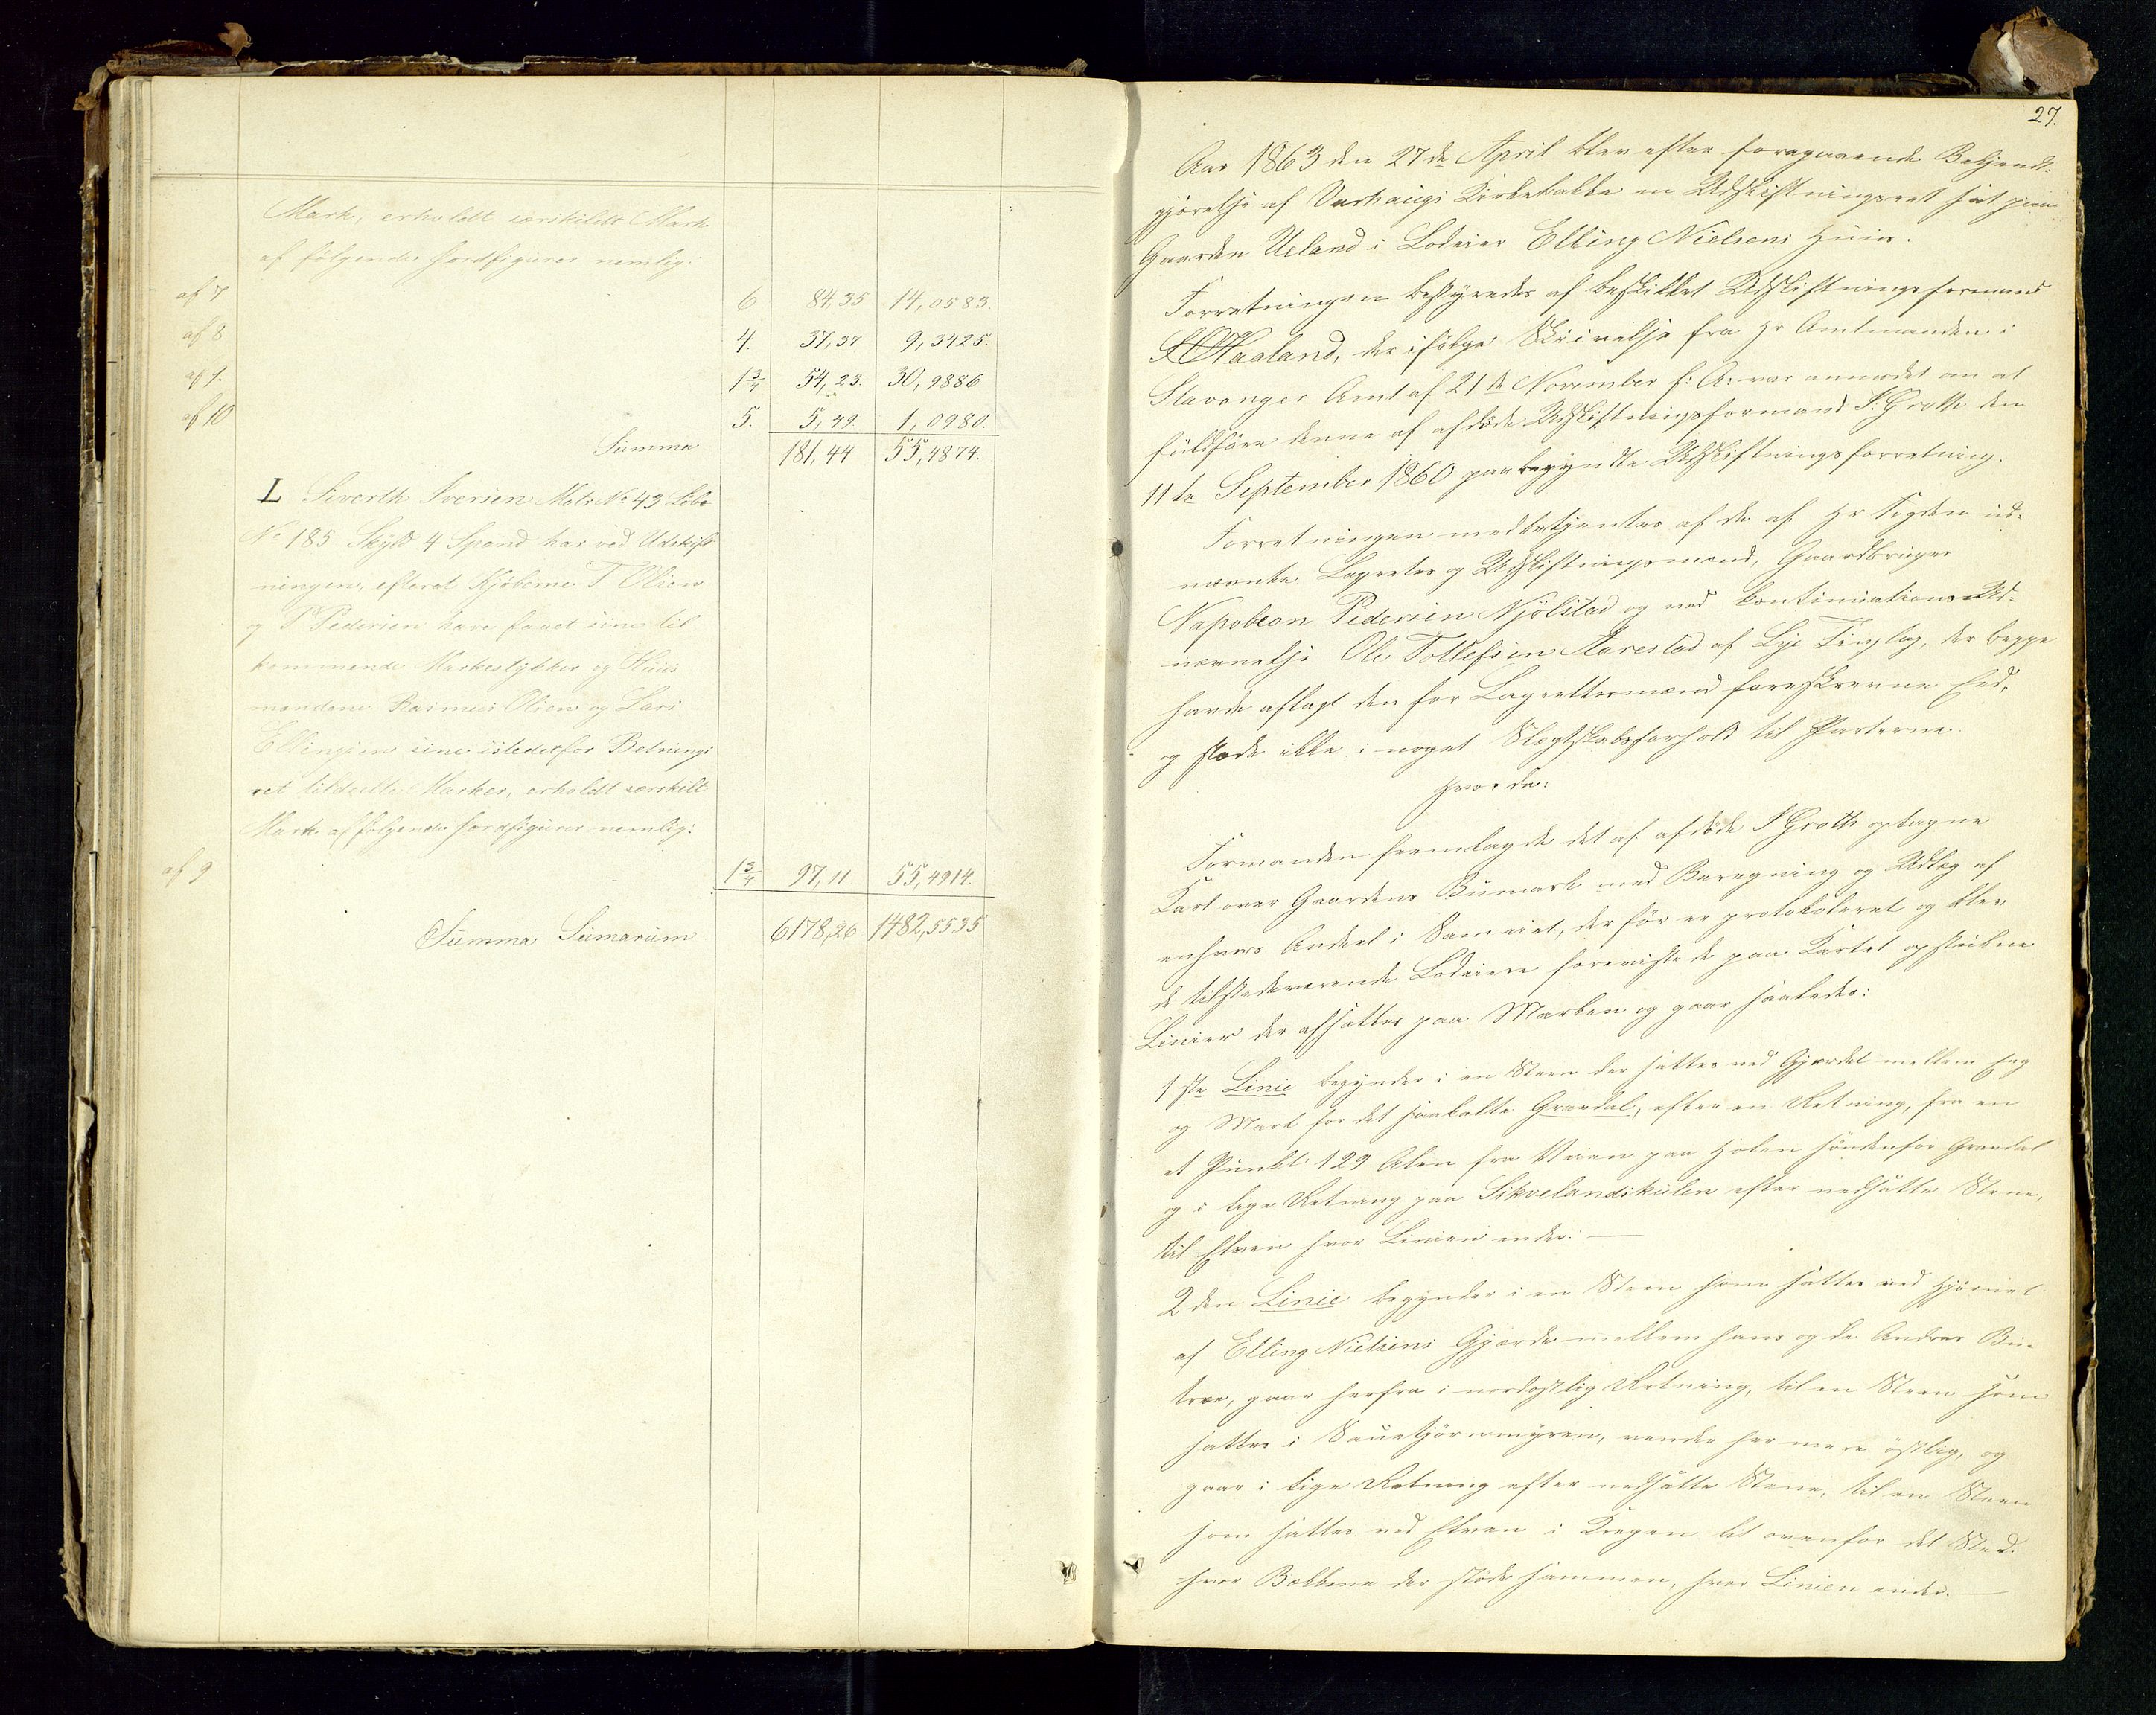 Mark, erholdt særskildt Mark
af følgende Jordfigurer nemlig:
af 7 6 84,35 14,0583.
af 8 4. 37,37 9,3425.
af 1. 1 3/4 54,23. 30,9886
af 10 5. 5,49. 1,0980.
Summa 181,44 55,4874.
L Siverth Iversen Matr No 43 Löbe
No 185 Skyld 4 Spand har ved Udskift
ningen, efterat Kjøberne T Olsen
og P Pedersen have faaet sine til
kommende Markestykker og Huus
mændene Rasmus Olsen og Lars
Ellingsen sine istedetfor Betnings
ret tildeelte Marker, erholdt særskilt
Mark af følgende Jordfigurer nemlig:
af 9 1 3/4 97,11 55,4914.
Summa Sumarum 6178,26 1482,5535
27.
Aar 1863 den 27de April blev efter foregaaende Bekjendt-
gjørelse af Varhaugs Kirkebakke en Udskiftningsret sat paa
Gaarden Ueland i Lodeier Elling Nielsens Huus.
Forretningen bestyredes af beskikket Udskiftningsformand
Haaland, der ifølge Skrivelse fra Hr Amtmanden i
Stavanger Amt af 21de November f: A: var anmodet om at
fuldføre denne af afdøde Udskiftningsformand S. Groth den
11te September 1860 paabegyndte Udskiftningsforretning.
Forretningen medbetjentes af de af Hr Fogden ud-
nævnte Lagrettes og Udskiftningsmænd, Gaardbruger
Napoleon Pedersen Njølstad og ved Continuations Ud-
nævnelse Ole Tollefsen Aarestad af Lye Tinglag, der begge
havde aflagt den for Lagrettesmænd foreskrevne Eed,
og stode ikke i noget Slægtskabsforhold til Parterne.
Hvorda:
Formanden fremlagde det af afdøde S Groth optagne
Kart over Gaardens Bumark med Beregning og Udlæg af
enhvers Andeel i Sameiet, der før er protokoleret og blev
de tilstedeværende Lodeiere foreviste de paa Kartet opstukne
Linier der afsættes paa Marken og gaar saaledes:
1ste Linie begynder i en Steen der sættes ved Gjærdet mellem Eng
og Mark for det saakalte Grøndal, efter en Retning, fra en
et Punkt 129 Alen fra Veien paa Holen søndenfor Grøndal
og i lige Retning paa Sikvelandskulen efter nedsatte Stene,
til Elven hvor Linien ender. —
2den Linie begynder i en Steen som sættes ved Hjørnet
af Elling Nielsens Gjærde mellem hans og de Andres Bu-
træe, gaar herfra i nordostlig Retning, til en Steen som
sættes i Sauetjørnmyren, vender her mere østlig, og
gaar i lige Retning efter nedsatte Stene, til en Steen
som sættes ved Elven i Krogen lit ovenfor det Sted.
hvor Bækkene der støde sammen, hvor Linien ender. —